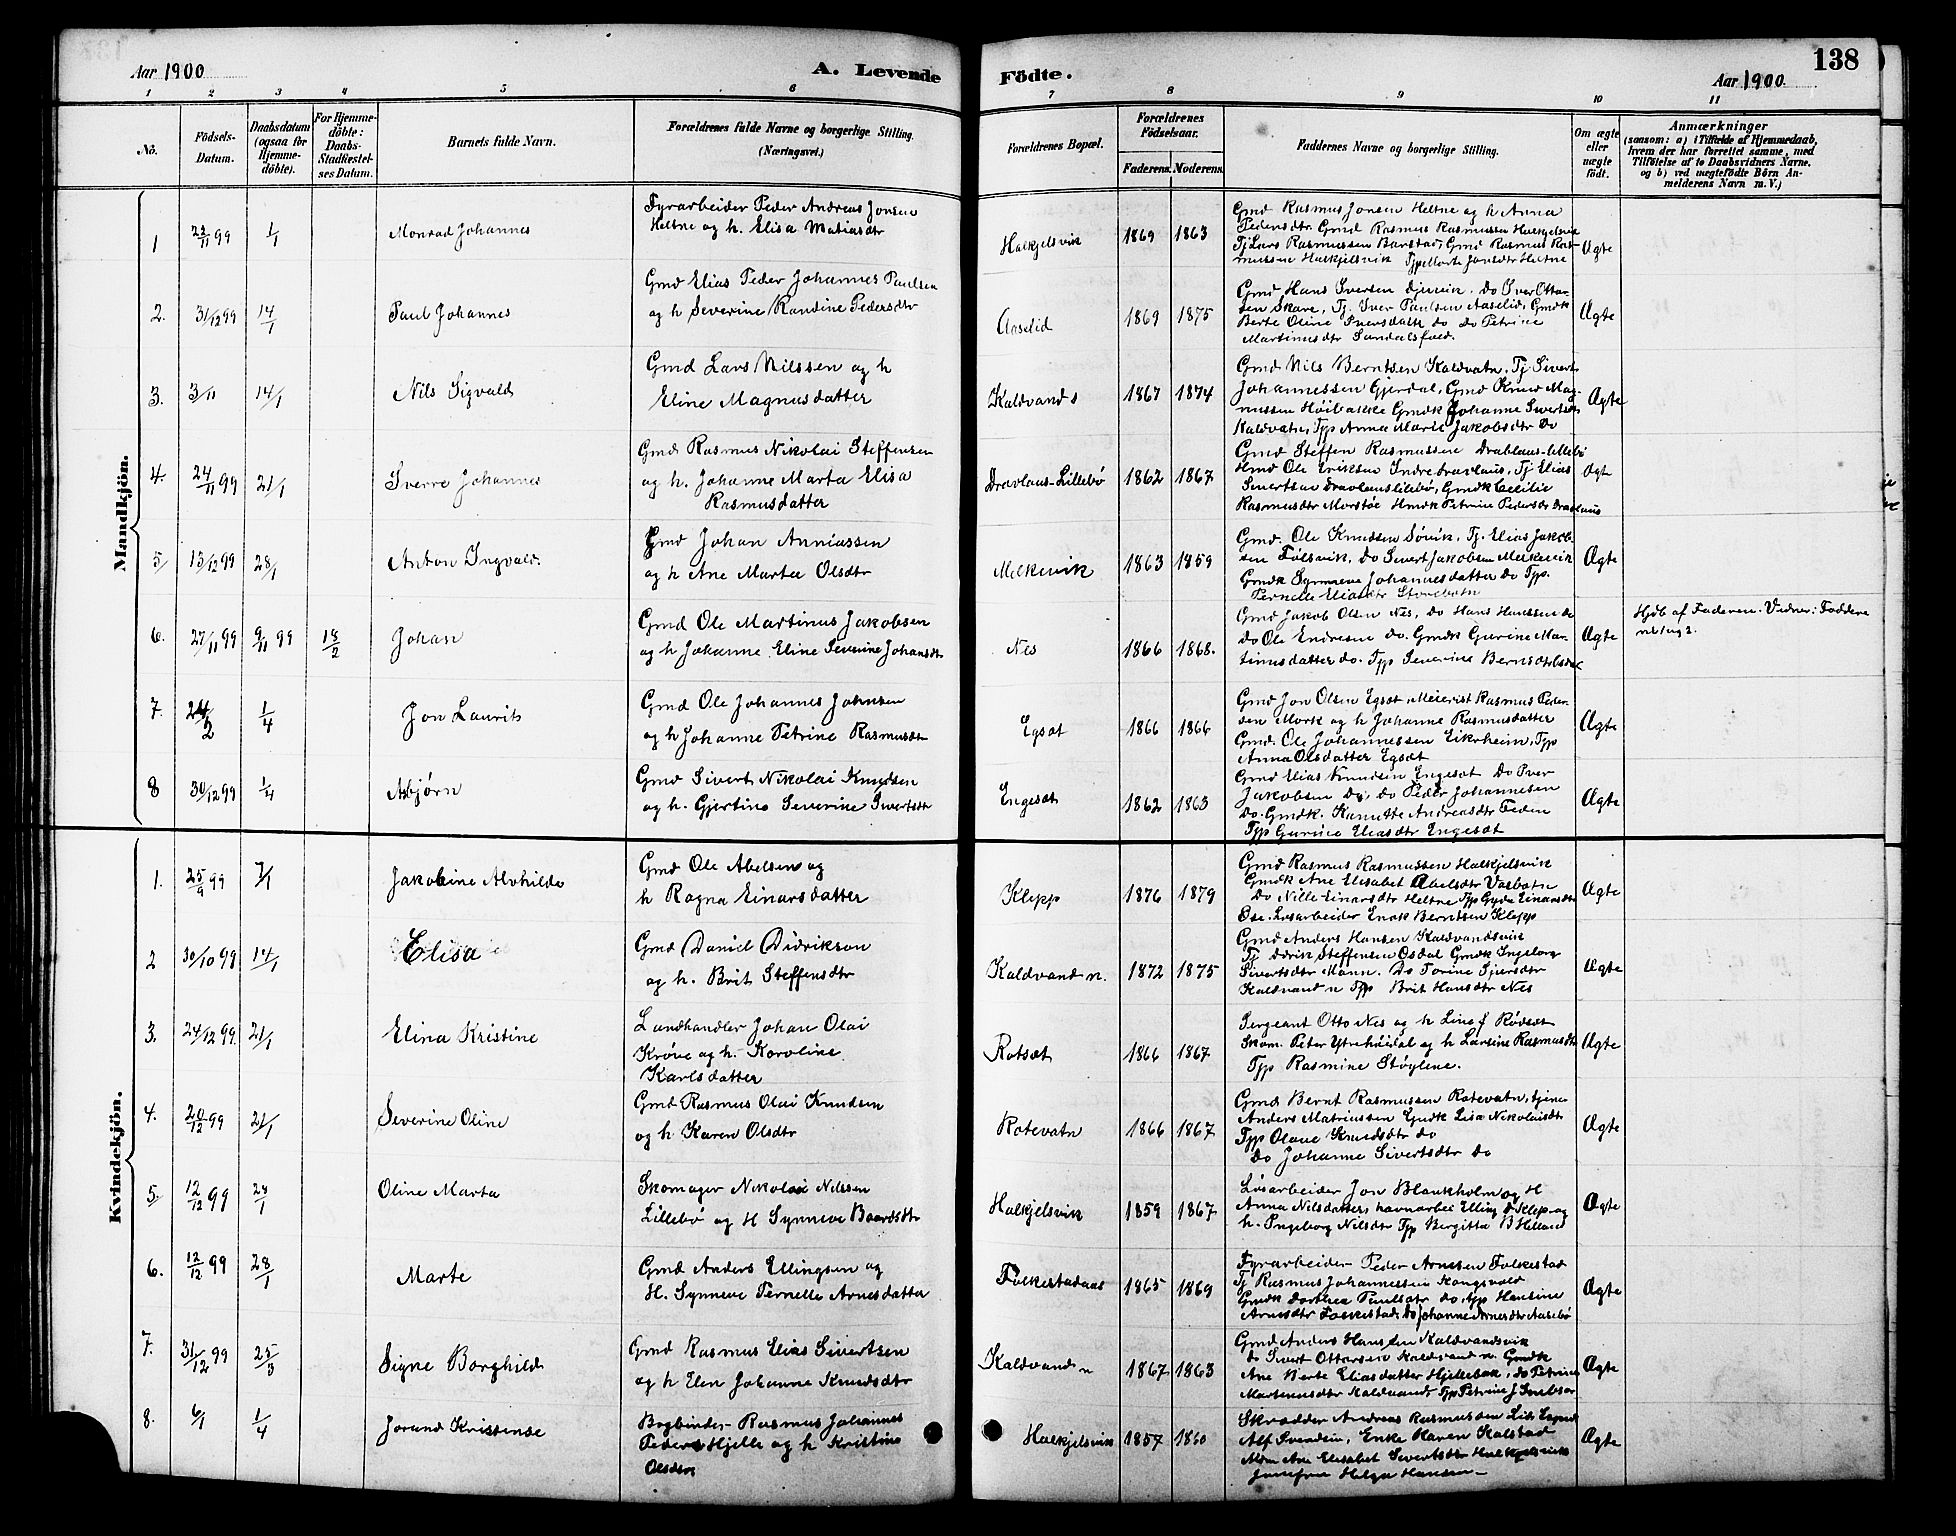 138
Aar 1900
A. Levende
Födte.
Aar 1900.
1 2 3 4 5 6 7 8 9 10 11
No.
Födsels-
Datum.
Daabsdatum
(ogsaa for
Hjemme-
döbte).
For Hjemme-
döbte:
Daabs-
Stadfæstel-
ses Datum.
Barnets fulde Navn.
Forældrenes fulde Navne og borgerlige Stilling.
(Næringsvei.)
Forældrenes Bopæl.
Forældrenes
Födselsaar.
Faderens. Moderens.
Faddernes Navne og borgerlige Stilling.
Om ægte
eller
uægte
födt.
Anmærkninger
(saasom: a) i Tilfælde af Hjemmedaab,
hvem der har forrettet samme, med
Tilföielse af to Daabsvidners Navne,
og b) ved uægtefödte Börn An-
melderens Navn m. V.)
Mandkjön.
1 23/11 99 1/1 Monrad Johannes
Fyrarbeider Peder Andreas Jonsen
Heltne og h. Elisa Matiasdtr
Halkjelsvik 1869 1863
Gmd Rasmus Jonsen Heltne og h Anna
Pedersdtr. Gmd Rasmus Rasmussen Halkjelsvik
Tj Lars Rasmussen Barstad, Gmd Rasmus Ras-
mussen Halkjelsvik Tjp Marte Jonsdtr Heltne
Ægte
2. 31/12 99 14/1 Paul Johannes
Gmd Elias Peder Johannes Paulsen
og h Severine Randine Pedersdtr
Aaselid 1869 1875
Gmd Hans Iversen Djuvin. Do Iver Otta-
sen Skare, Tj. Iver Paulsen Aaselid, Gmdk
Berte Oline Iversdatt do Do Petrine
Martinusdtr Sundalsfoed.
Ægte
3. 3/11 14/1 Nils Sigvald
Gmd Lars Nilssen og h
Eline Magnusdatter
Kaldvand s 1867 1874
Gmd Nils Berntsen Kaldvatn, Tj Sivert
Johannessen Gjerdal, Gmd Knud Mag-
nussen Höibakke Gmdk Johanne Sivertsdtr
Kaldvatn, Tjp Anna Marte Jakobsdtr Do
Ægte
4. 24/11 99 21/1 Sverre Johannes
Gmd Rasmus Nikolai Steffensen
og h. Johanne Marta Elisa
Rasmusdatter
Dravlaus-Lillebø 1862 1867
Gmd Steffen Rasmussen Drablaus-lillebø
Hmd Ole Eriksen Indredravlaus, Tj Elias
Sivertsen Dravlauslillebø, Gmdk Cecilie
Rasmusdtr Morstøl Hmdk Petrine Pedersdtr Dravlaus
Ægt
5/ 13/12 99 28/1 Anton Ingvald.
Gmd Johan Anniassen
og h Ane Marta Olsdtr
Melkevik 1863 1859
Gmd. Ole Knudsen Søvik, Tj. Elias Jakob-
sen Følsvik, Do Sivert Jakobsen Melkevik
Gmdk Synneve Johannesdatter Do Tjp.
Pernelle Eliasdtr Storebotn
Ægte
6. 27/11 99 9/11 99 18/2 Johan
Gmd Ole Martinus Jakobsen
og h Johanne Eline Severine Johansdt
Nes 1866 1868.
Gmd Jakob Olsen Nes, Do Hans Hanssen do
Do Ole Endresen do. Gmdk Gurine Mar-
tinusdatter do. Tjp Severine Berntsdtr
Ægte
Hjdb af Faderen. Vidner: Faddere
no 1 og 2.
7. 24/2 1/4 Jon Laurits
Gmd Ole Johannes Johnsen
og h Johanne Petrine Rasmusdt
Egsæt 1866 1866
Gmd Jon Olsen Egsæt Meierist Rasmus Peder-
sen Mork og h Johanne Rasmusdatter
Gmd. Ole Johannessen Eikrheim, Tjp
Anna Olsdatter Egsæt
Ægte
8 30/12 99 1/4 Asbjørn
Gmd Sivert Nikolai Knudsen
og h. Gjertine Severine Sivertsdt
Engesæt 1862 1863
Gmd Elias Knudsen Engesæt Do Iver
Jakobsen Do, do Peder Johannesen
Do. Gmdk. Kanutte Andreasdtr
Tjp Gurine Eliasdtr Engesæt
Ægte
Kvindekjön.
1. 25/9 99 7/1 Jakobine Alvhilde
Gmd Ole Abelsen og
h Ragna Einarsdatter
Klepp 1876 1879
Gmd Rasmus Rasmussen Halkjelsvik
Gmdk Ane Elisabet Abelsdtr Vasbotn
Do Nille Einarsdtr Heltne Tjp Gyda Einarsdtr
Øse. Løsarbeider Enok Berntsen Klepp
Ægte
2 30/10 99 14/1 Elisa
Gmd Daniel Didrikson
og h. Brit Steffensdtr
Kaldvand n. 1872 1875
Gmd Anders Hansen Kaldvandsvik
Tj Steffensen Osdal Gmdk Ingeborg
Sivertsdtr Mann. Do Torine
Kaldvand n Tjp Brit Hansdtr Nes
Ægte
3. 24/12 99. 21/1 Elina Kristine
Landhandler Johan Olai
Krøve og h. Karoline
Karlsdatter
Rotsæt 1866 1867
Sergeant Otto Nes og h Line f Rødsæt
Skom. Peter Ytrehöidal og h Larsine Rasmusdt
Tjp Rasmine Støylene.
Ægte
4. 20/12 99 21/1 Severine Oline
Gmd Rasmus Olai Knudsen
og h Karen Olsdtr
Rotevatn 1866 1867
Gmd Bernt Rasmussen Rotevatn, tjene
Anders Matriussen Gmdk Lisa Nikolaisdtr
Tjp Olave Knudsdtr do
Do Johanne Sivertsdtr Do
Ægte
5. 12/12 99 28/1 Oline Marta
Skomager Nikolai Nilssen
Lillebø og H Synneve Baardsdtr
Halkjelsvik 1859 1867
Løsarbeider Jon Blankholm og H
Anna Nilsdatter, havnarbei Elling D Klep og
h. Ingeborg Nilsdtr Tjp Bergitta B Helland
Ægte
6. 12/12 99 28/1 Marte
Gmd Anders Ellingsen og
H. Synneve Pernelle Arnesdatter
Folkestadaas 1865 1869
Fyrarbeider Peder Arnesen Folkestad
Tj Rasmus Johannessen Kongsvold
Gmdk Dorthea Paulsdtr do, tjp Hansine
Arnesdtr Folkestad, Do Johanne Arnesdtr Aasebø
Ægte
7. 31/12 99 25/3 Signe Borghild
Gmd Rasmus Elias Sivertsen
og h Elen Johanne Knudsdtr
Kaldvand n 1867 1863
Gmd Anders Hanssen Kaldvandsvik
do Sivert Ottarsen Kaldvand n. Gmdk
Ane Berte Eliasdatter Hjellebak, do Petrine
Martinusdtr Kaldvand Tjp Petrine J
Ægte
8. 6/1 1/4 Jorund Kristense
Bogbinder Rasmus Johannes
Peders Hjelle og h Kristine
Olsdtr
Halkjelsvik 1857 1860
Skrædder Andreas Rasmussen
Alf Svendsen, Enke Maren Kalstad
Ane Elisabet Sivertsdtr Halkjelsvik
Jomfru Helga Hansen
Ægte